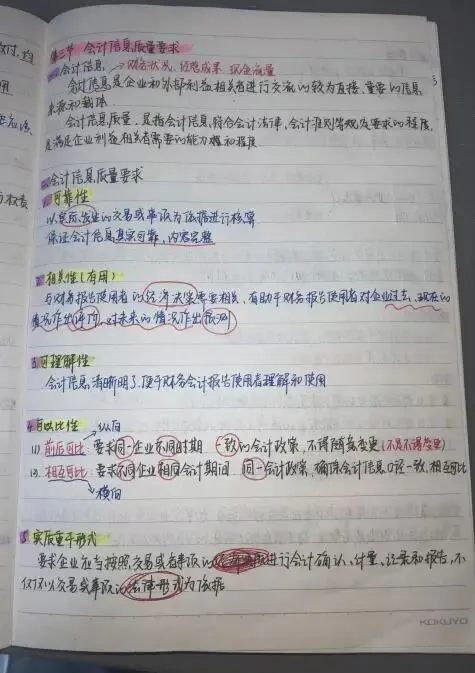 第三节 会计信息质量要求
一、会计信息 → 财务状况 经营成果 现金流量
会计信息是企业和外部利益相关者进行交流的较为直接、重要的信息
来源和载体
会计信息质量,是指会计信息符合会计法律、会计准则等规定要求的程度,
是满足企业利益相关者需要的能力和程度
二、会计信息质量要求
1.可靠性
以实际发生的交易或事项为依据进行核算
保证会计信息真实可靠,内容完整
2.相关性(有用)
与财务报告使用者的经济决策需要相关,有助于财务报告使用者对企业过去、现在的
情况作出评价,对未来的情况作出预测
3.可理解性
会计信息清晰明了,便于财务会计报告使用者理解和使用
4.可比性
纵向
(1) 前后可比:要求同一企业不同时期 一致的会计政策,不得随意变更(不是不得变更)
(2) 相互可比:要求不同企业相同会计期间 同一会计政策,确保会计信息口径一致,相互可比
横向
5.实质重于形式
要求企业应当按照交易或者事项的经济实质进行会计确认、计量、记录和报告,不
仅仅以交易或事项的法律形式为依据
KOKUYO